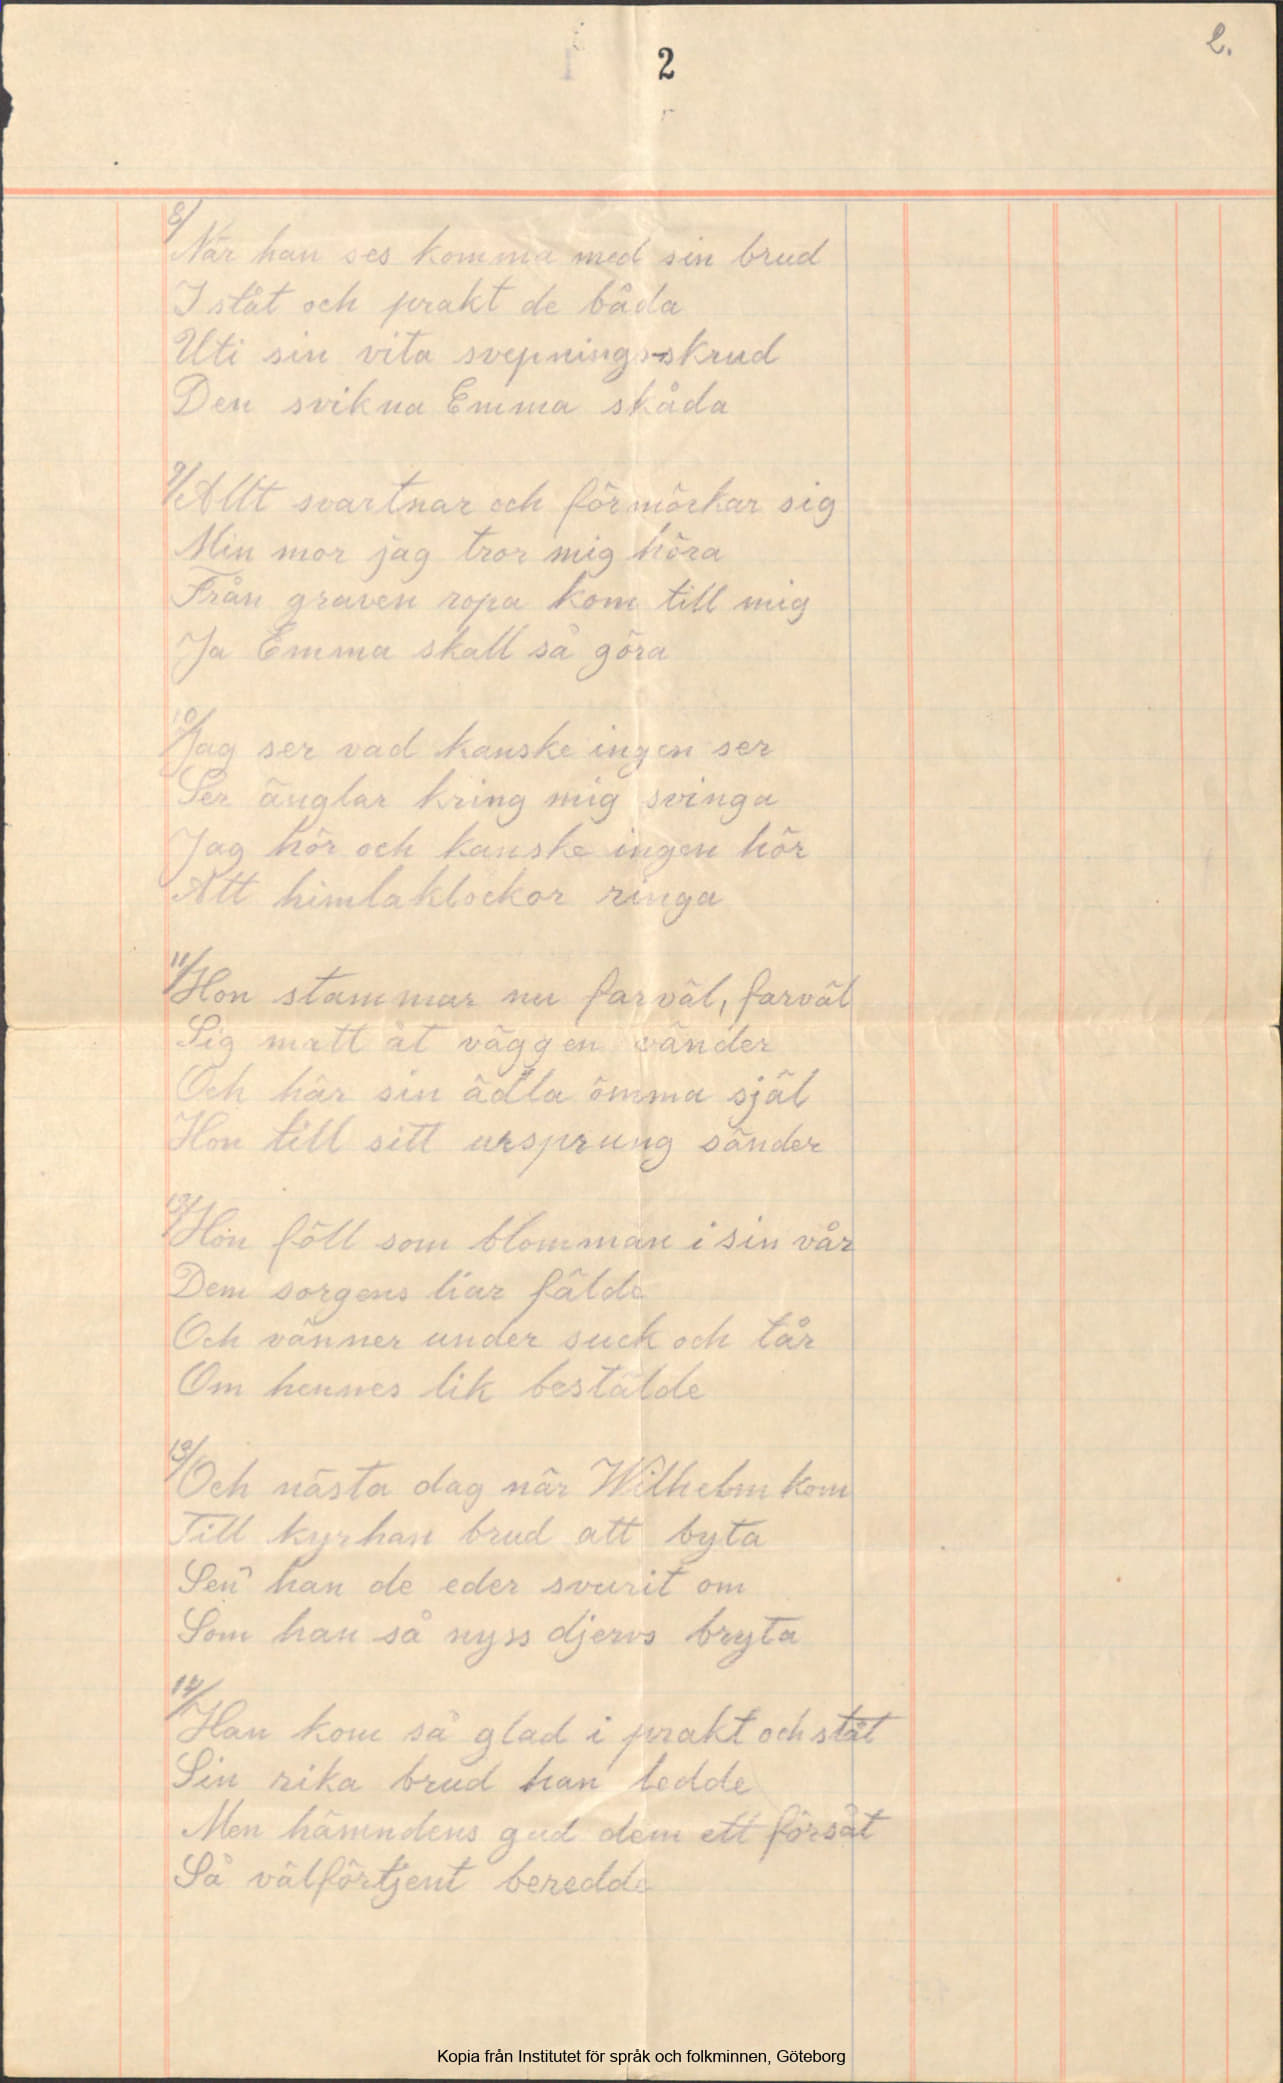 2
2.
8/
När han ses komma med sin brud
I ståt och prakt de båda
Uti sin vita svepnings-skrud
Den svikna Emma skåda
9/ Allt svartnar och förmörkar sig
Min mor jag tror mig höra
Från graven ropa kom till mig
Ja Emma skall så göra
10/
Jag ser vad kanske ingen ser
Ser änglar kring mig svinga
Jag hör och kanske ingen hör
Att himlaklockor ringa
11/
Hon stammar nu farväl, farväl
Sig matt åt väggen vänder
Och här sin ädla ömma själ
Hon till sitt ursprung sänder
12/
Hon föll som blomman i sin vår
Dem sorgens liar fälde
Och vänner under suck och tår
Om hennes lik bestälde
13/
Och nästa dag när Wilhelm kom
Till kyrkan brud att byta
Sen han de eder svurit om
Som han så nyss djervs bryta
14/
Han kom så glad i prakt och ståt
Sin rika brud han ledde
Men hämndens gud dem ett försåt
Så välförtjent beredde
Kopia från Institutet för språk och folkminnen, Göteborg